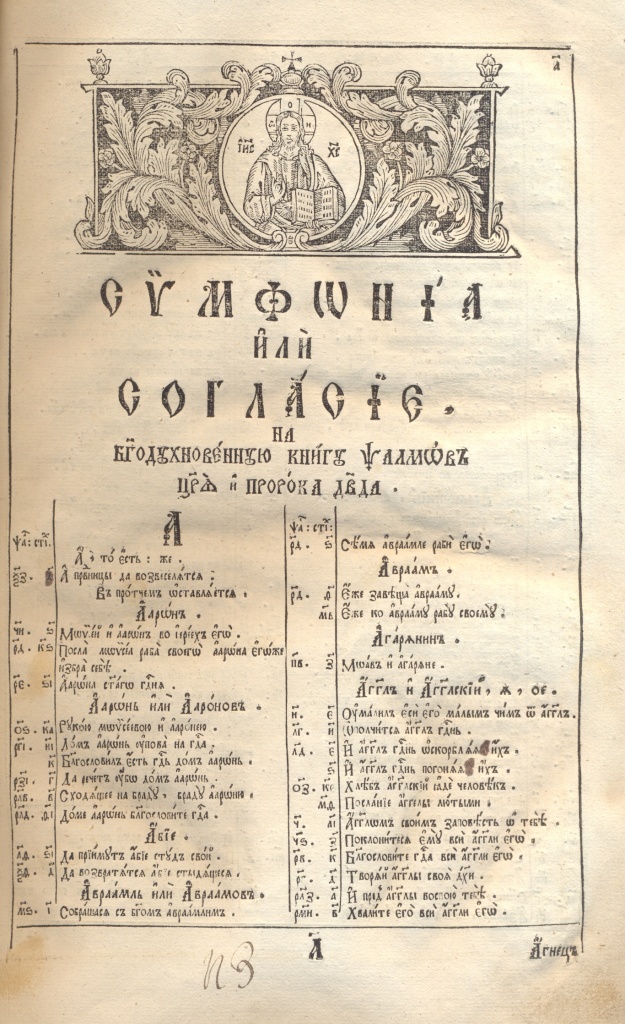 а҃
І҆И҃С Х҃С
СѴМФѠНІ́А
И҆ЛЍ
СОГЛА́СІЕ.
НА
БГ҃ОДУХНОВЕ́ННУЮ КНИ́ГУ ѰАЛМѠ́ВЪ
ЦР҃Ѧ И҆ ПРОРО́КА ДВ҃ДА.
А
ѱа҃: сті҃:
А҆, то є҆́сть: же.
ѯ҃з. А҆ првⷣницы да возвеселѧ́тсѧ;
Въ про́тчемъ ѡ҆ставлѧ́етсѧ.
А҆арѡ́нъ.
ч҃и. ѕ҃ Мѡѷсе́й и҆ а҆арѡ́нъ во і҆ере́ехъ є҆гѡ̀.
р҃д. к҃ѕ Посла̀ мѡѷсе́а раба̀ своего̀ а҆арѡ́на є҆го́же
и҆збра̀ себѣ̀.
р҃е. ѕ҃і А҆арѡ́на ст҃а́го гдⷭ҇нѧ.
А҆арѡ́нь или А҆арѡ́новъ.
о҃ѕ. к҃а Руко́ю мѡѷсе́овою и҆ а҆арѡ́нею.
р҃гі. к҃і До́мъ а҆арѡ́нь ᲂу҆пова̀ на гдⷭ҇а.
к҃ Благослови́лъ є҆́сть гдⷭ҇ь до́мъ а҆арѡ́нь.
р҃зі. г҃ Да рече́тъ ᲂу҆́бѡ до́мъ а҆арѡ́нь.
р҃лв. в҃ Сходѧ́щее на браду̀, браду̀ а҆арѡ́ню.
р҃лд. ѳ҃і До́ме а҆арѡ́нь благослови́те гдⷭ҇а.
А҆́біе.
л҃ѳ. ѕ҃і Да прїи́мутъ а҆́біе сту́дъ сво́й.
ѯ҃ѳ. д҃ Да возвратѧ́тсѧ а҆́біе стыдѧ́щесѧ.
А҆враа́мль или А҆враа́мовъ.
м҃ѕ. і҃ Собра́шасѧ съ бг҃омъ а҆враа́млимъ.
ѱа҃: сті҃:
р҃д. ѕ҃ Сѣ́мѧ а҆враа́мле рабѝ є҆гѡ̀.
А҆враа́мъ.
р҃д. ѳ҃ Є҆́же завѣща̀ а҆враа́му.
м҃в Є҆́же ко а҆враа́му рабу̀ своему̀.
А҆гарѧ́нинъ.
п҃в. з҃ Мѡа́въ и҆ а҆гарѧ́не.
А҆́гг҃лъ и҆ А҆́гг҃лскій, ѧ, ое.
и҃. є҃ Оу҆ма́лилъ є҆сѝ є҆го̀ ма́лымъ чи́мъ ѿ а҆́гг҃лъ.
л҃г. и҃ Ѡ҆полчи́тсѧ а҆́гг҃лъ гдⷭ҇нь.
л҃д. є҃ И҆ а҆́гг҃лъ гдⷭ҇нь ѡ҆скорблѧ́ѧ и҆́хъ.
ѕ҃ И҆ а҆́гг҃лъ гдⷭ҇нь погонѧ́ѧ и҆́хъ.
о҃з. к҃е Хлѣ́бъ а҆́гг҃лскій ꙗ҆дѐ человѣ́къ.
м҃ѳ Посла́ніе а҆́ггелы лю́тыми.
ч҃. а҃і А҆́гг҃лѡмъ свои̑мъ заповѣ́сть ѡ҆ тебѣ̀.
ч҃ѕ. з҃ Поклони́тесѧ є҆му̀ всѝ а҆́гг҃ли є҆гѡ̀.
р҃в. к҃ Благослови́те гдⷭ҇а всѝ а҆́гг҃ли є҆гѡ̀.
р҃г. д҃ Творѧ́й а҆́гг҃лы своѧ̀ дх҃и.
р҃лз. а҃ И҆ предⷣ а҆́гг҃лы воспою̀ тебѣ̀.
р҃ми. в҃ Хвали́те є҆го̀ всѝ а҆́гг҃ли є҆гѡ̀.
А҃
А҆́гнецъ